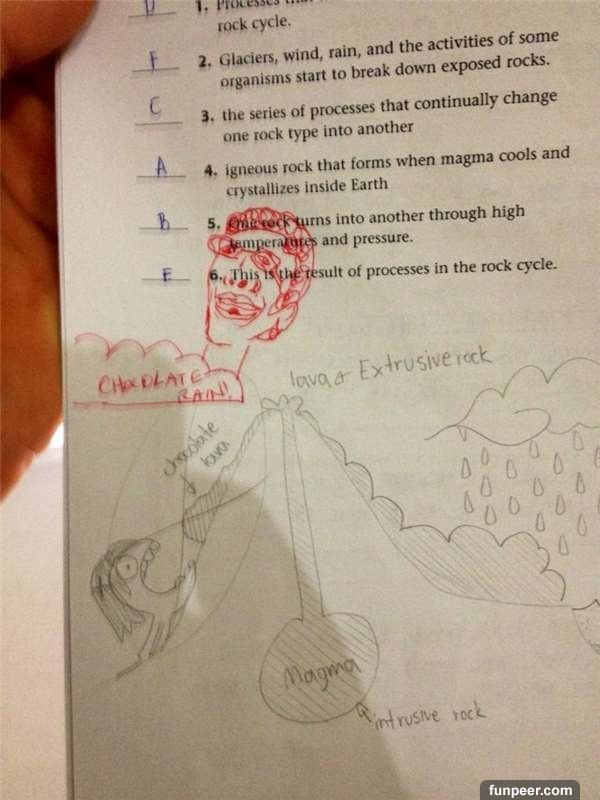 D 1. Processes that
rock cycle.
F 2. Glaciers, wind, rain, and the activities of some
organisms start to break down exposed rocks.
C 3. the series of processes that continually change
one rock type into another
A 4. igneous rock that forms when magma cools and
crystallizes inside Earth
B 5. One rock turns into another through high
temperatures and pressure.
E 6. This is the result of processes in the rock cycle.
CHOCOLATE
RAIN!
lava & Extrusive rock
chocolate
lava
Magma
intrusive rock
funpeer.com